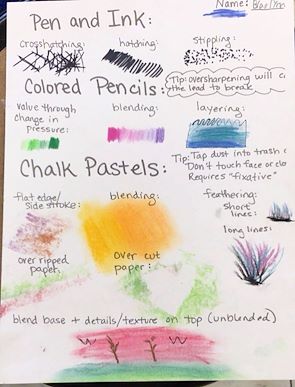 Name:
Pen and Ink:
crosshatching: hatching: stippling:
Colored Pencils:
Tip: oversharpening will
the lead to break
value through
change in
pressure:
blending:
layering:
Chalk Pastels:
Tip: Tap dust into trash
"Don't touch face or
Requires "fixative"
flat edge/
side stroke:
blending:
feathering:
short
lines:
long lines:
over ripped
paper:
over cut
paper:
blend base + details/texture on top (unblended)